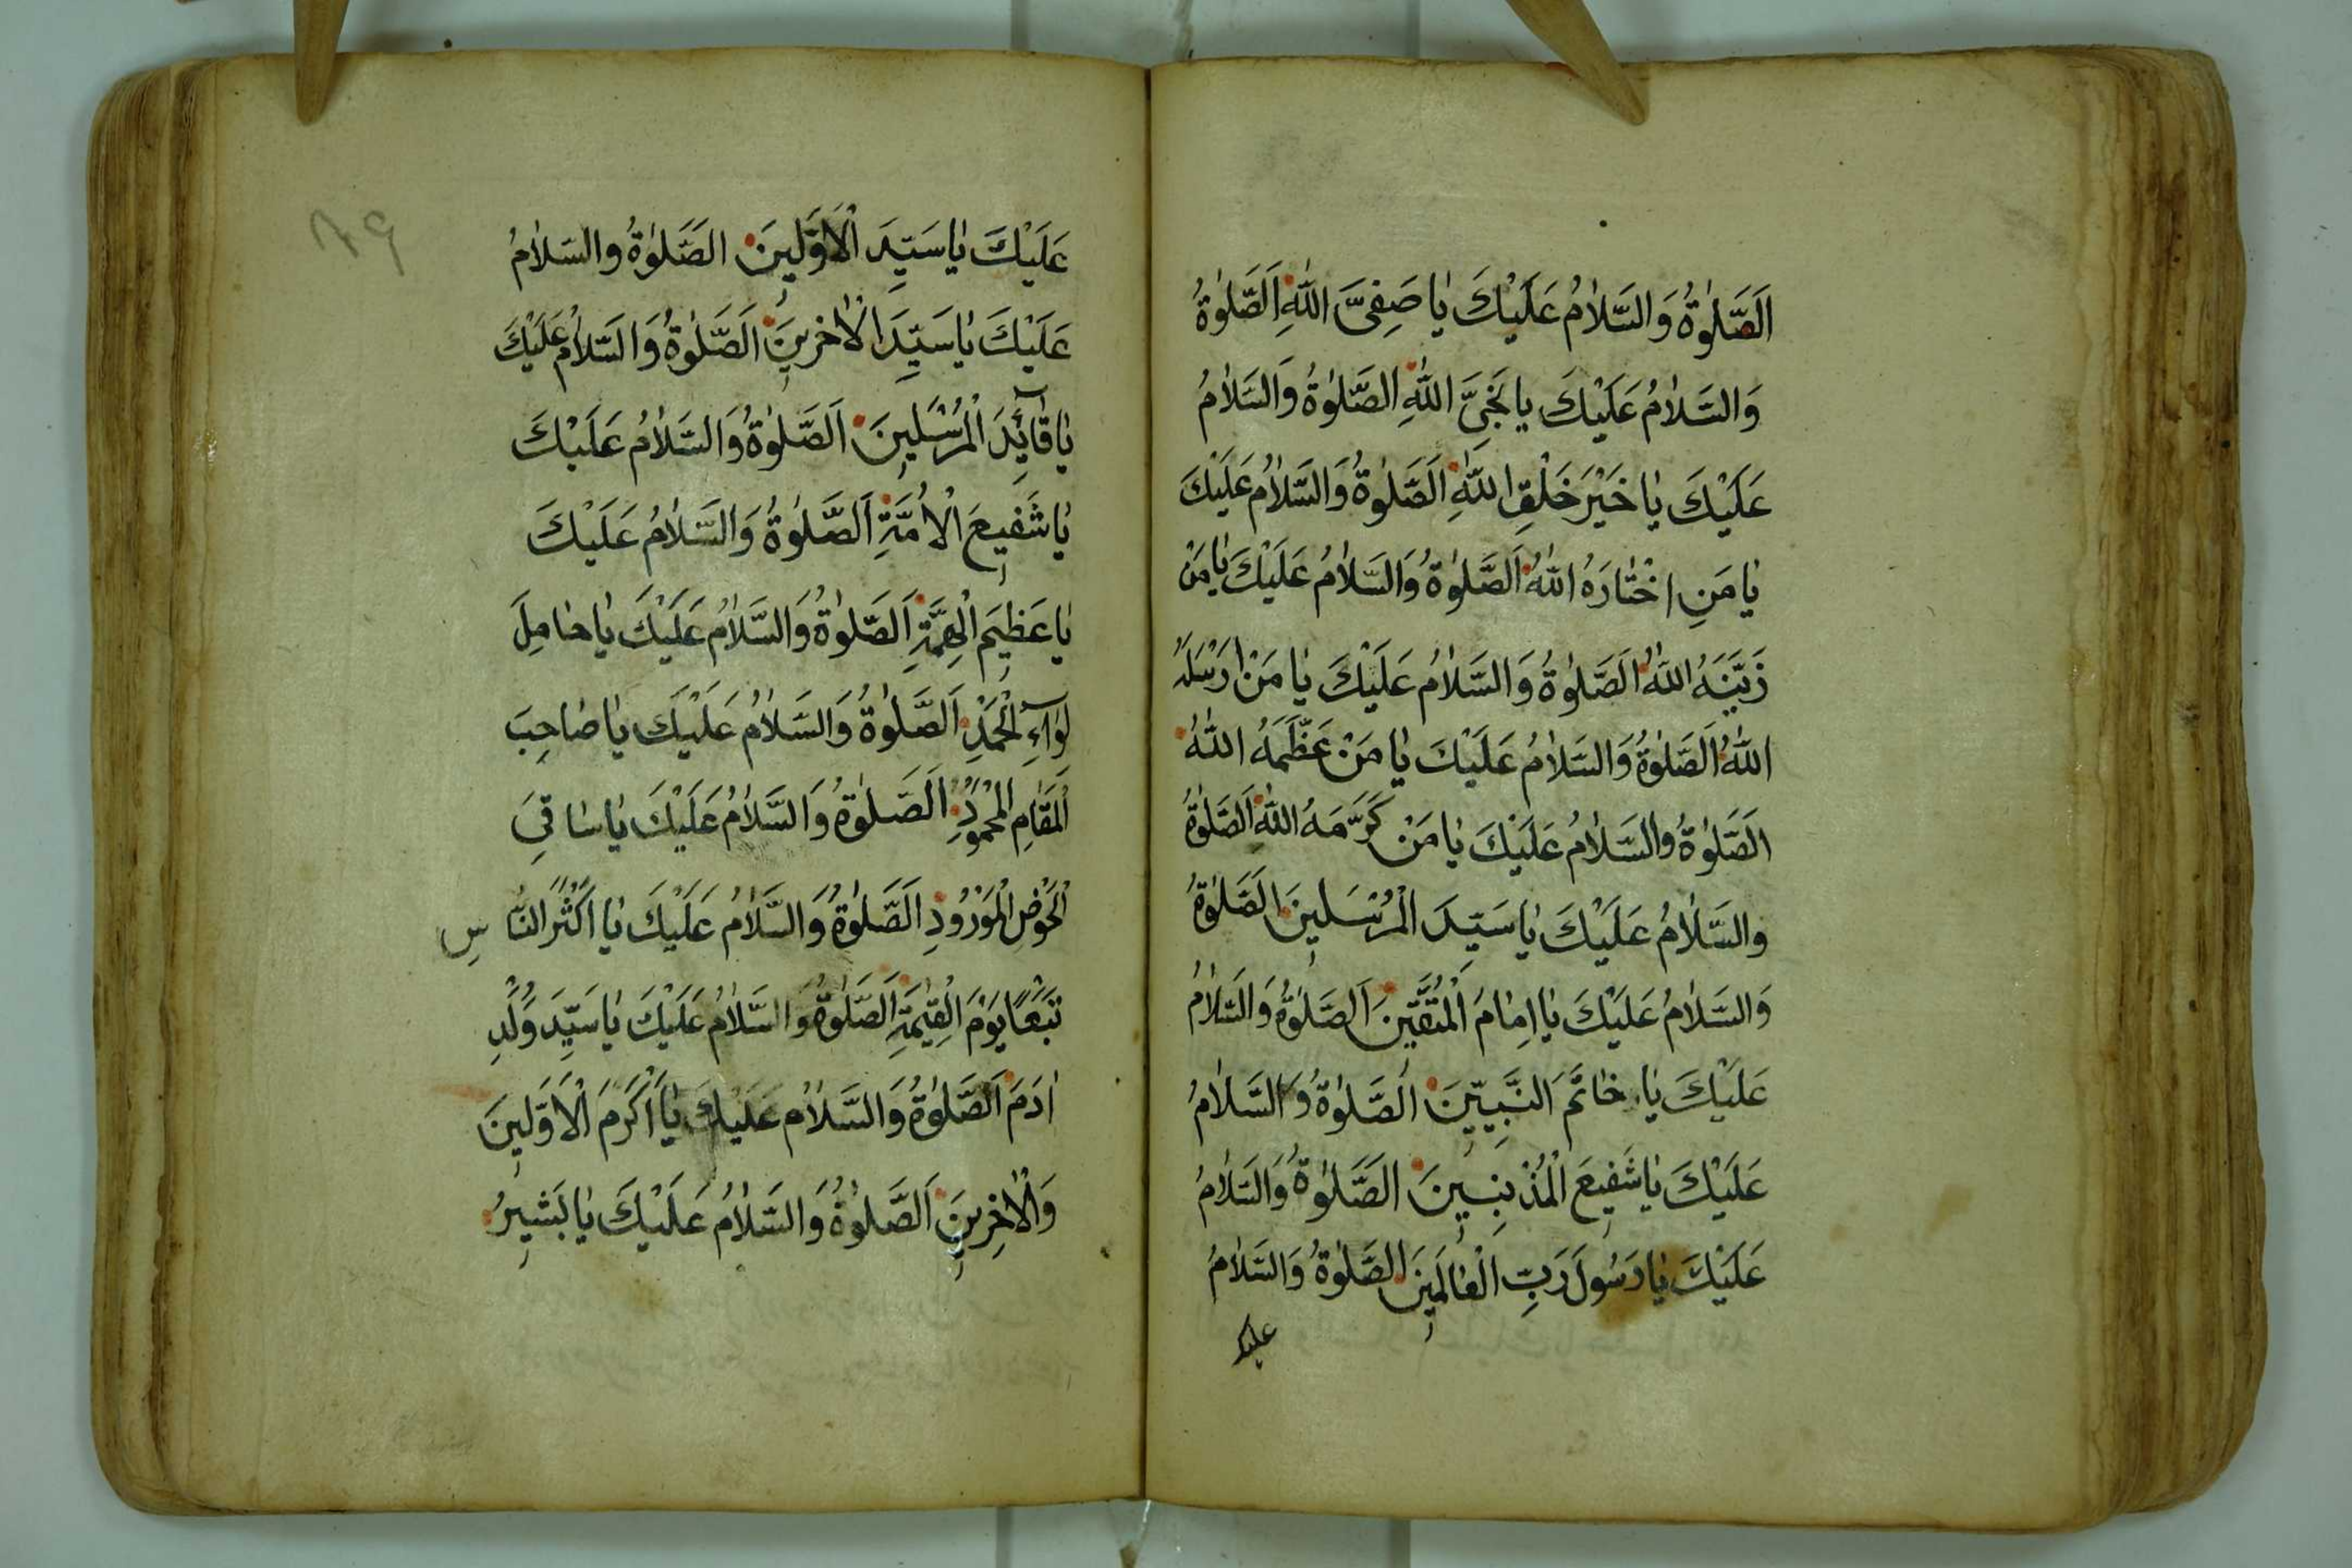 اَلصَّلٰوةُ وَالسَّلَامُ عَلَيْكَ يَا صَفِىَّ اللّٰهِ اَلصَّلٰوةُ
وَالسَّلَامُ عَلَيْكَ يَا نَجِىَّ اللّٰهِ الصَّلٰوةُ وَالسَّلَامُ
عَلَيْكَ يَا خَيْرَ خَلْقِ اللّٰهِ اَلصَّلٰوةُ وَالسَّلَامُ عَلَيْكَ
يَا مَنِ اخْتَارَهُ اللّٰهُ اَلصَّلٰوةُ وَالسَّلَامُ عَلَيْكَ يَا مَنْ
زَيَّنَهُ اللّٰهُ اَلصَّلٰوةُ وَالسَّلَامُ عَلَيْكَ يَا مَنْ اَرْسَلَهُ
اللّٰهُ اَلصَّلٰوةُ وَالسَّلَامُ عَلَيْكَ يَا مَنْ عَظَّمَهُ اللّٰهُ
اَلصَّلٰوةُ وَالسَّلَامُ عَلَيْكَ يَا مَنْ كَرَّمَهُ اللّٰهُ اَلصَّلٰوةُ
وَالسَّلَامُ عَلَيْكَ يَا سَيِّدَ الْمُرْسَلِينَ اَلصَّلٰوةُ
وَالسَّلَامُ عَلَيْكَ يَا اِمَامَ الْمُتَّقِينَ اَلصَّلٰوةُ وَالسَّلَامُ
عَلَيْكَ يَا خَاتَمَ النَّبِيِّينَ اَلصَّلٰوةُ وَالسَّلَامُ
عَلَيْكَ يَا شَفِيعَ الْمُذْنِبِينَ اَلصَّلٰوةُ وَالسَّلَامُ
عَلَيْكَ يَا رَسُولَ رَبِّ الْعَالَمِينَ الصَّلٰوةُ وَالسَّلَامُ
عليك
٨٩
عَلَيْكَ يَا سَيِّدَ الْاَوَّلِينَ الصَّلٰوةُ وَالسَّلَامُ
عَلَيْكَ يَا سَيِّدَ الْاٰخِرِينَ اَلصَّلٰوةُ وَالسَّلَامُ عَلَيْكَ
يَا قَآئِدَ الْمُرْسَلِينَ اَلصَّلٰوةُ وَالسَّلَامُ عَلَيْكَ
يَا شَفِيعَ الْاُمَّةِ اَلصَّلٰوةُ وَالسَّلَامُ عَلَيْكَ
يَا عَظِيمَ الْهِمَّةِ اَلصَّلٰوةُ وَالسَّلَامُ عَلَيْكَ يَا حَامِلَ
لِوَآءِ الْحَمْدِ اَلصَّلٰوةُ وَالسَّلَامُ عَلَيْكَ يَا صَاحِبَ
الْمَقَامِ الْمَحْمُودِ اَلصَّلٰوةُ وَالسَّلَامُ عَلَيْكَ يَا سَاقِىَ
الْحَوْضِ الْمَوْرُودِ اَلصَّلٰوةُ وَالسَّلَامُ عَلَيْكَ يَا اَكْثَرَ النَّاسِ
تَبَعًا يَوْمَ الْقِيٰمَةِ اَلصَّلٰوةُ وَالسَّلَامُ عَلَيْكَ يَا سَيِّدَ وُلْدِ
اٰدَمَ اَلصَّلٰوةُ وَالسَّلَامُ عَلَيْكَ يَا اَكْرَمَ الْاَوَّلِينَ
وَالْاٰخِرِينَ اَلصَّلٰوةُ وَالسَّلَامُ عَلَيْكَ يَا بَشِيرُ